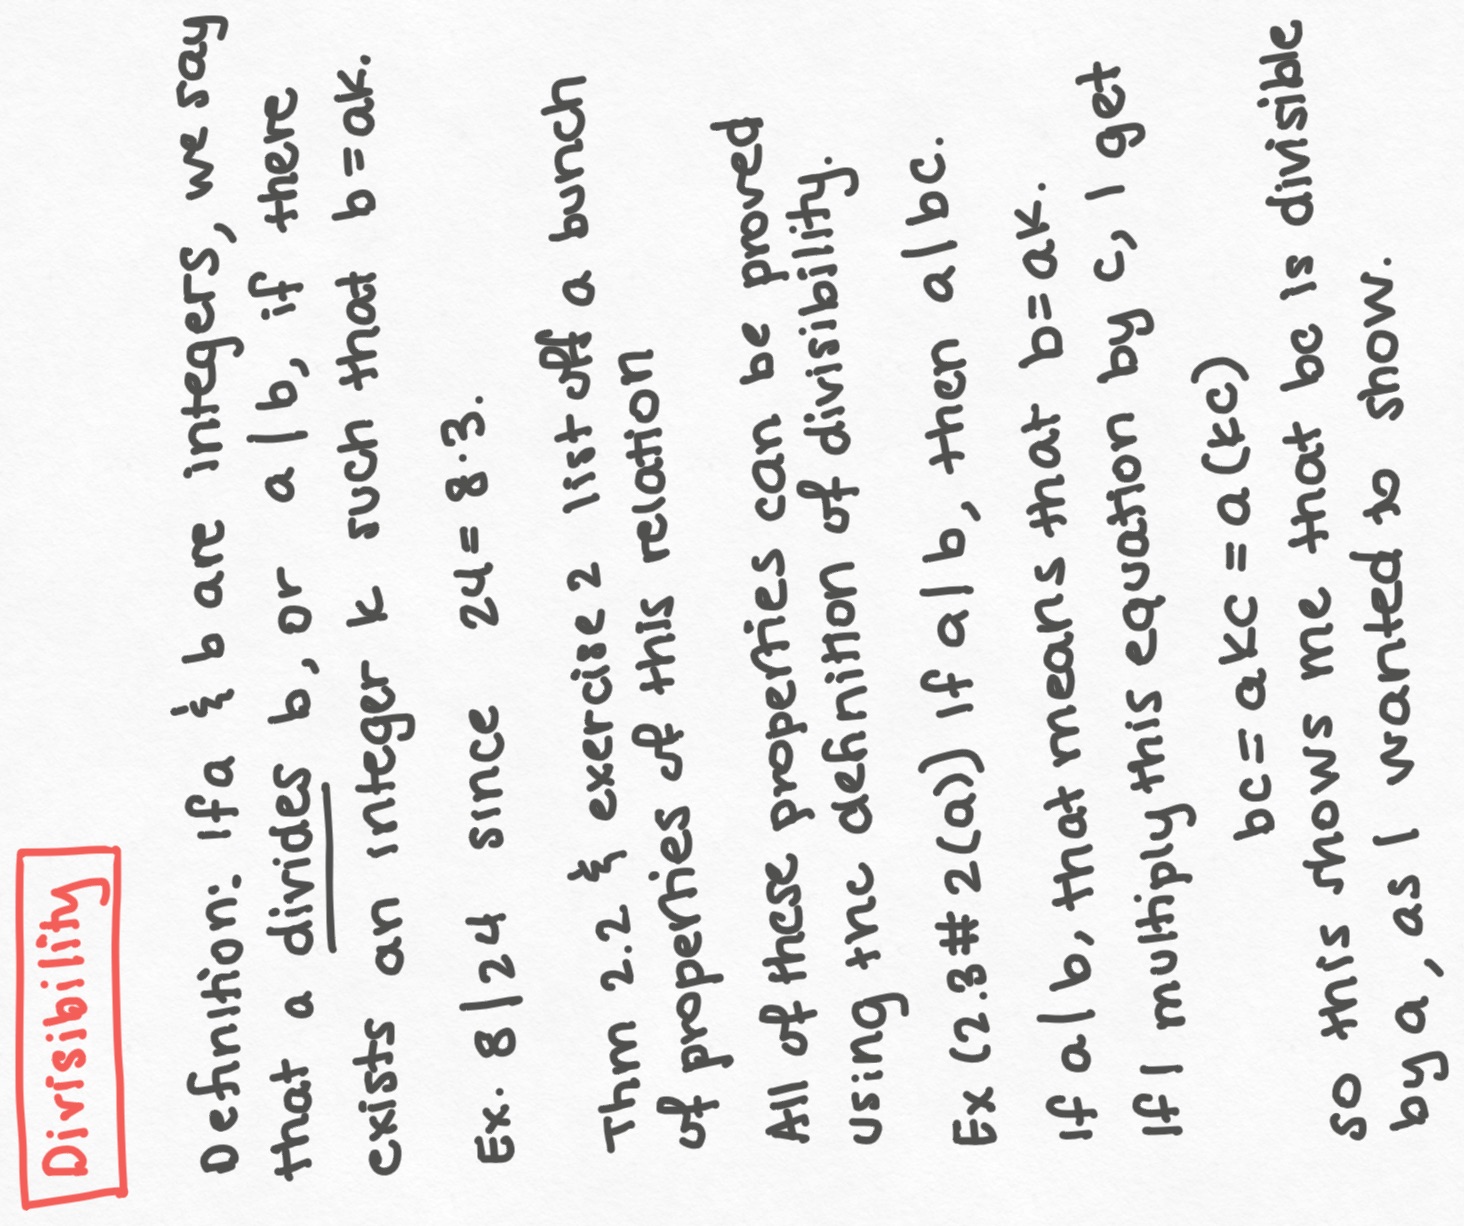 Divisibility
Definition: If a & b are integers, we say
that a divides b, or a | b, if there
exists an integer k such that b = ak.
Ex. 8 | 24 since 24 = 8·3.
Thm 2.2 & exercise 2 list off a bunch
of properties of this relation
All of these properties can be proved
using the definition of divisibility.
Ex (2.3 # 2(a)) If a | b, then a | bc.
If a | b, that means that b = ak.
If I multiply this equation by c, I get
bc = akc = a(kc)
so this shows me that bc is divisible
by a, as I wanted to show.